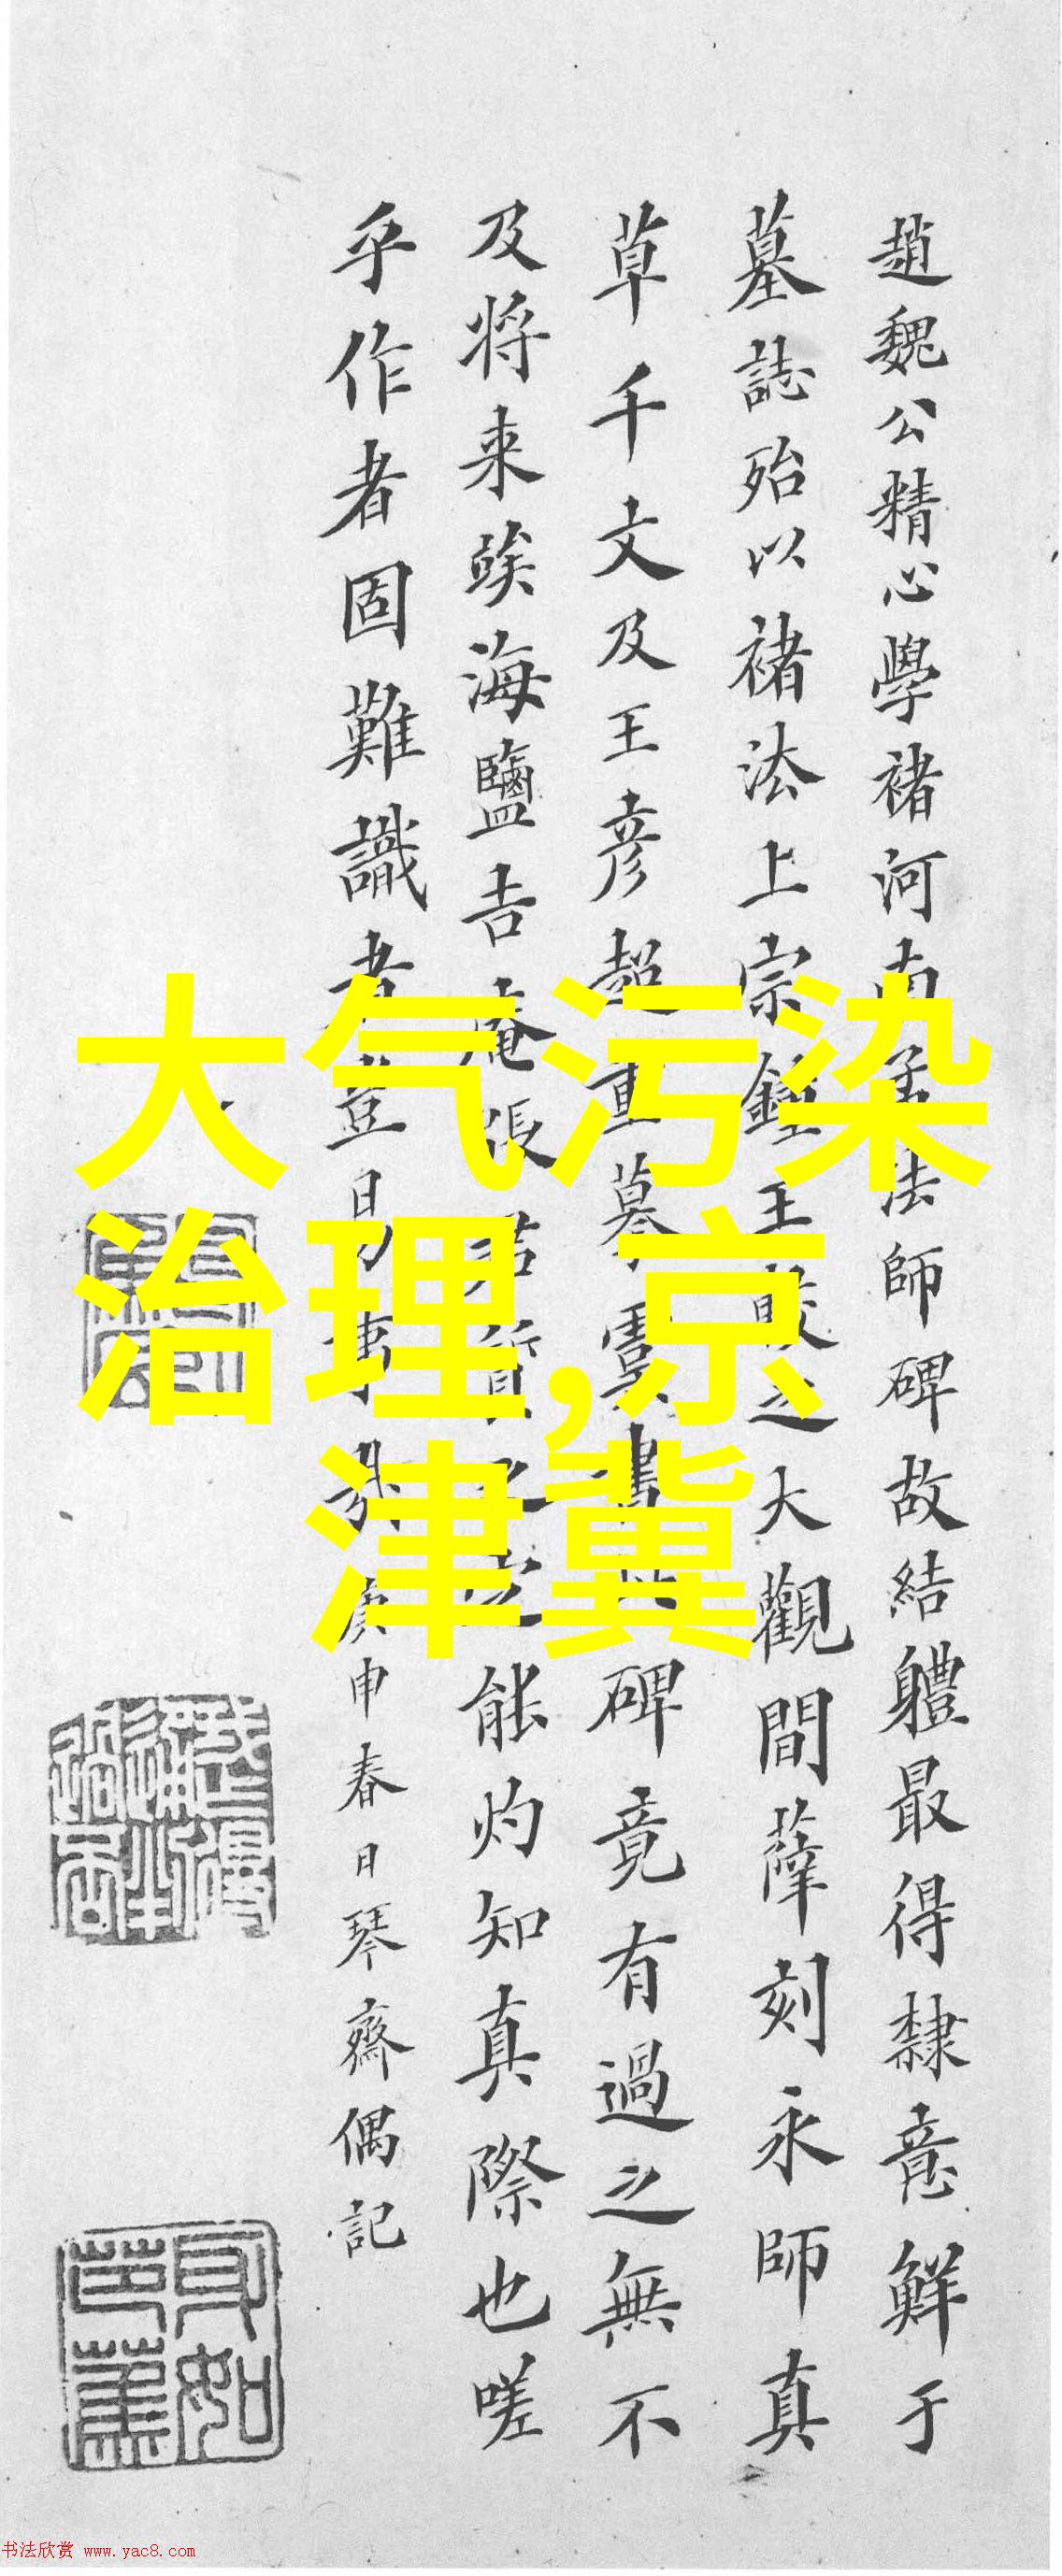 趙魏公精心學褚河南孟法師碑故結軆最得隸意鮮于
墓誌殆以褚法上宗鍾王之大觀間薛刻永師真
草千文及王彥超重摹虞書碑竟有過之無不
及将来竢海鹽吉庵張君質之定能灼知真際也嗟
乎作者固難識者豈易事哉庚申春日琴齋偶記
大气污染
治理,京
津冀
书法欣赏 www.yac8.com